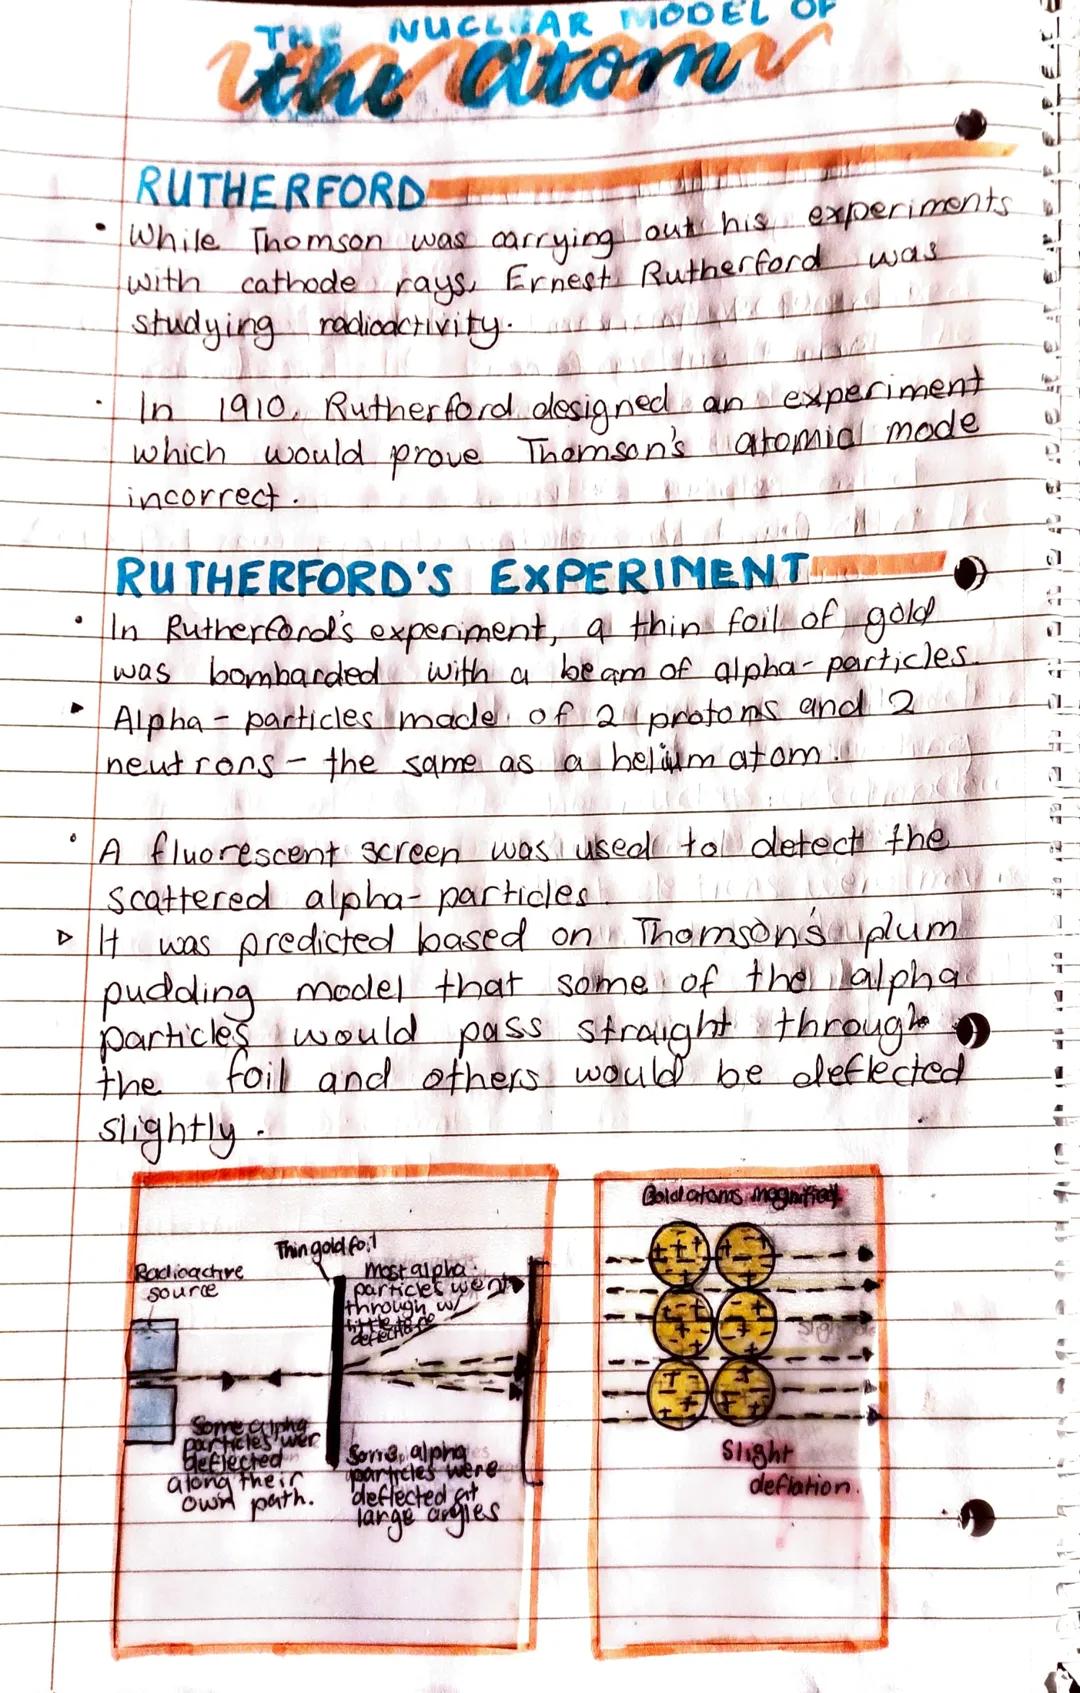 THE NUCLEAR MODEL OF
the atom
RUTHERFORD
• While Thomson was carrying out his experiments
with cathode rays, Ernest Rutherford was
studying radioactivity.
• In 1910, Rutherford designed an experiment
which would prove Thomson's atomic mode
incorrect.
RUTHERFORD'S EXPERIMENT
• In Rutherford's experiment, a thin foil of gold
was bombarded with a beam of alpha-particles.
▸ Alpha-particles made of 2 protons and 2
neutrons - the same as a helium atom.
• A fluorescent screen was used to detect the
scattered alpha-particles.
▹ It was predicted based on Thomson's plum
pudding model that some of the alpha
particles would pass straight through
the foil and others would be deflected
slightly.
Thin gold foil
Radioactive
source
most alpha
particles went
through w/
little to no
Some alpha
particles wer
deflected
along their
own path.
Some alpha
particles were
deflected at
large angles
Gold atoms magnified.
Slight
deflation.